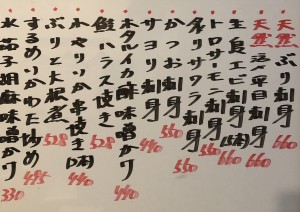 天然 ぶり刺身 660
天然 活〆平目刺身 660
生食エビ刺身(5本) 660
トロサーモン刺身 550
炙り刺身 550
かつお刺身 550
サヨリ刺身 440
ホタルイカ酢味噌かけ 440
鮭ハラス焼き 528
小やりいか串焼き(2本) 440
ぶりと大根煮 528
するめいかわた炒め 495
水茄子胡麻味噌かけ 330